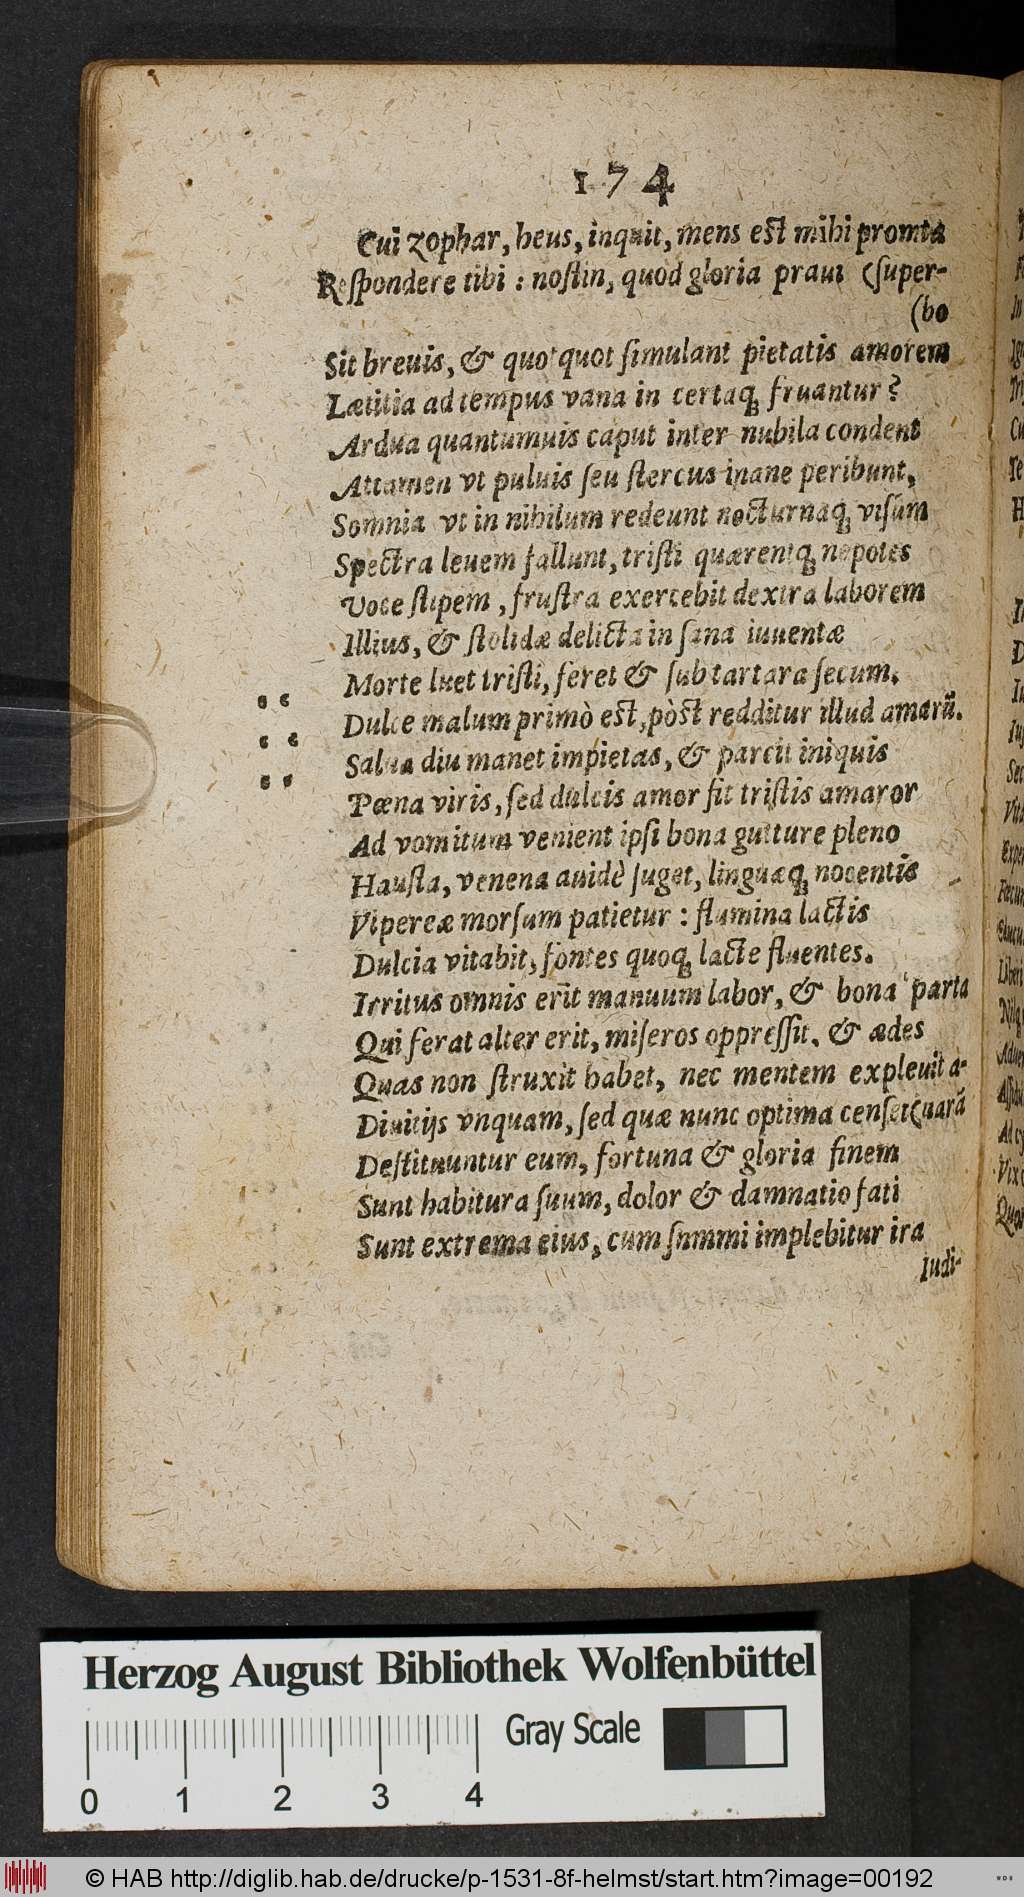 174
Cui Zophar, heus, inquit, mens est mihi promta
Respondere tibi: nostin, quod gloria praui (super-
(bo
Sit breuis, & quotquot simulant pietatis amorem
Lætitia ad tempus vana in certaq; fruantur?
Ardua quantumuis caput inter nubila condent
Attamen vt puluis seu stercus inane peribunt,
Somnia vt in nihilum redeunt nocturnaq; visum
Spectra leuem fallunt, tristi quærentq; nepotes
Voce stipem, frustra exercebit dextra laborem
Illius, & stolidæ delicta in sana iuuentæ
Morte luet tristi, feret & sub tartara secum.
Dulce malum primò est, pòst redditur illud amarũ.
Salua diu manet impietas, & parcit iniquis
Pœna viris, sed dulcis amor fit tristis amaror
Ad vomitum venient ipsi bona gutture pleno
Hausta, venena auidè suget, linguæq; nocentis
Vipereæ morsum patietur: flumina lactis
Dulcia vitabit, fontes quoq; lacte fluentes.
Irritus omnis erit manuum labor, & bona parta
Qui ferat alter erit, miseros oppressit. & ædes
Quas non struxit habet, nec mentem expleuit a-
Diuitijs vnquam, sed quæ nunc optima censet (uarã
Destituuntur eum, fortuna & gloria finem
Sunt habitura suum, dolor & damnatio fati
Sunt extrema eius, cum summi implebitur ira
Iudi-
Herzog August Bibliothek Wolfenbüttel
Gray Scale
0 1 2 3 4
© HAB http://diglib.hab.de/drucke/p-1531-8f-helmst/start.htm?image=00192